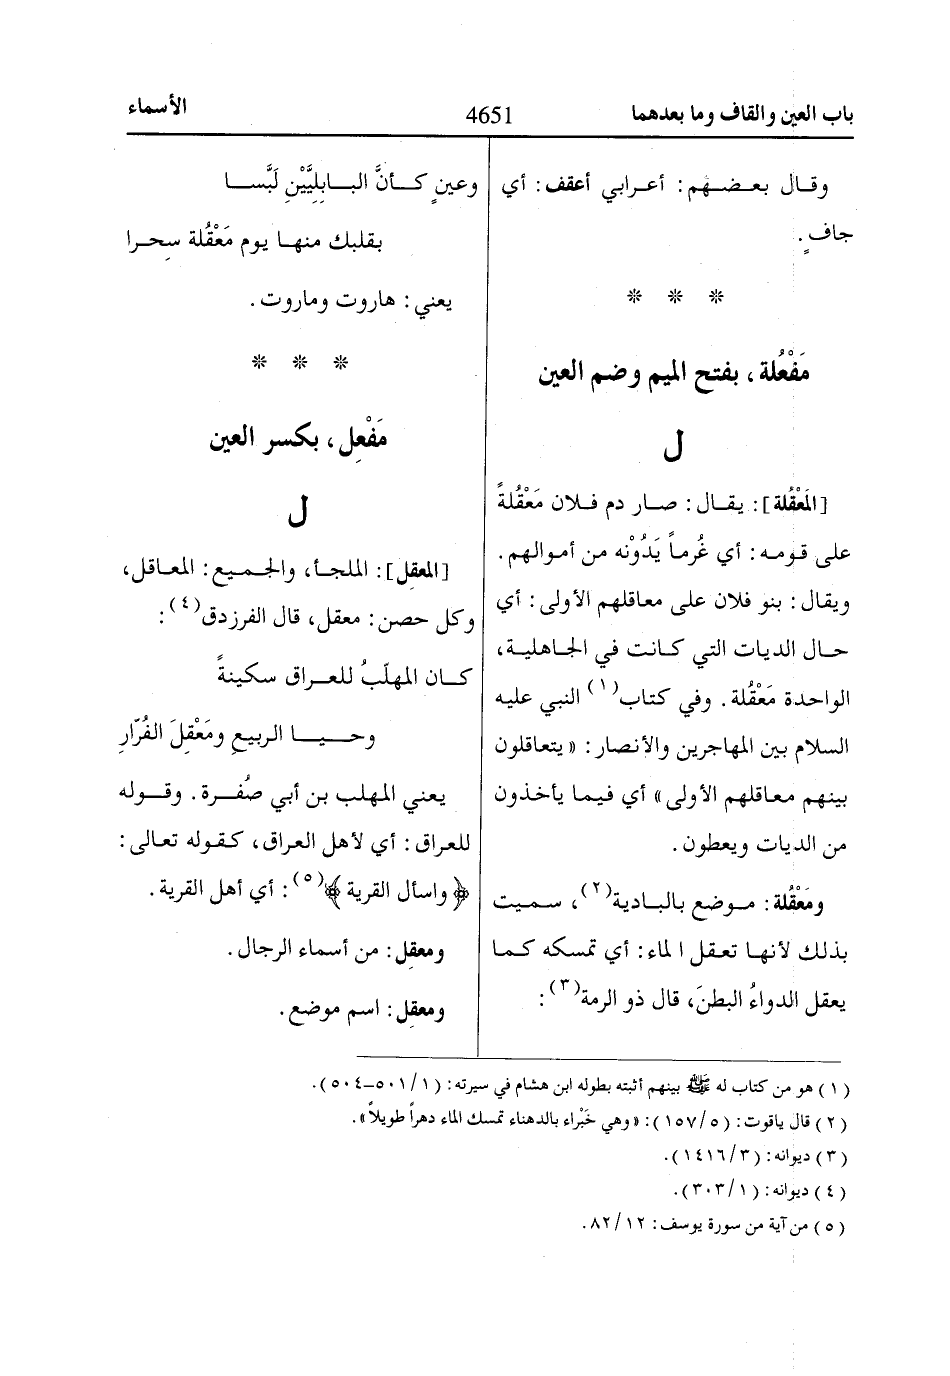 باب العين والقاف وما بعدهما
4651
الأسماء
وقال بعضهم: أعرابي أعقف: أي
جافٍ.
* * *
مَفْعُلة، بفتح الميم وضم العين
ل
[المَعْقُلة]: يقال: صار دم فلان مَعْقُلةً
على قومه: أي غُرماً يَدُوْنه من أموالهم.
ويقال: بنو فلان على معاقلهم الأولى: أي
حال الديات التي كانت في الجاهلية،
الواحدة مَعْقُلة. وفي كتاب(١) النبي عليه
السلام بين المهاجرين والأنصار: «يتعاقلون
بينهم معاقلهم الأولى» أي فيما يأخذون
من الديات ويعطون.
ومَعْقُلة: موضع بالبادية(٢)، سميت
بذلك لأنها تعقل الماء: أي تمسكه كما
يعقل الدواءُ البطنَ، قال ذو الرمة(٣):
وعينٍ كأنَّ البابليَّيْنِ لَبَّسا
بقلبك منها يوم مَعْقُلة سِحرا
يعني: هاروت وماروت.
* * *
مَفْعِل، بكسر العين
ل
[المعقِل]: الملجأ، والجميع: المعاقل،
وكل حصن: معقل، قال الفرزدق(٤):
كان المهلّبُ للعراق سكينةً
وحيا الربيعِ ومَعْقِلَ الفُرّارِ
يعني المهلب بن أبي صُفرة. وقوله
للعراق: أي لأهل العراق، كقوله تعالى:
﴿واسأل القرية﴾(٥): أي أهل القرية.
ومعقِل: من أسماء الرجال.
ومعقِل: اسم موضع.
(١) هو من كتاب له ﷺ بينهم أثبته بطوله ابن هشام في سيرته: (١/٥٠١-٥٠٤).
(٢) قال ياقوت: (٥/١٥٧): «وهي خَبْراء بالدهناء تمسك الماء دهراً طويلاً».
(٣) ديوانه: (٣/١٤١٦).
(٤) ديوانه: (١/٣٠٣).
(٥) من آية من سورة يوسف: ١٢/٨٢.